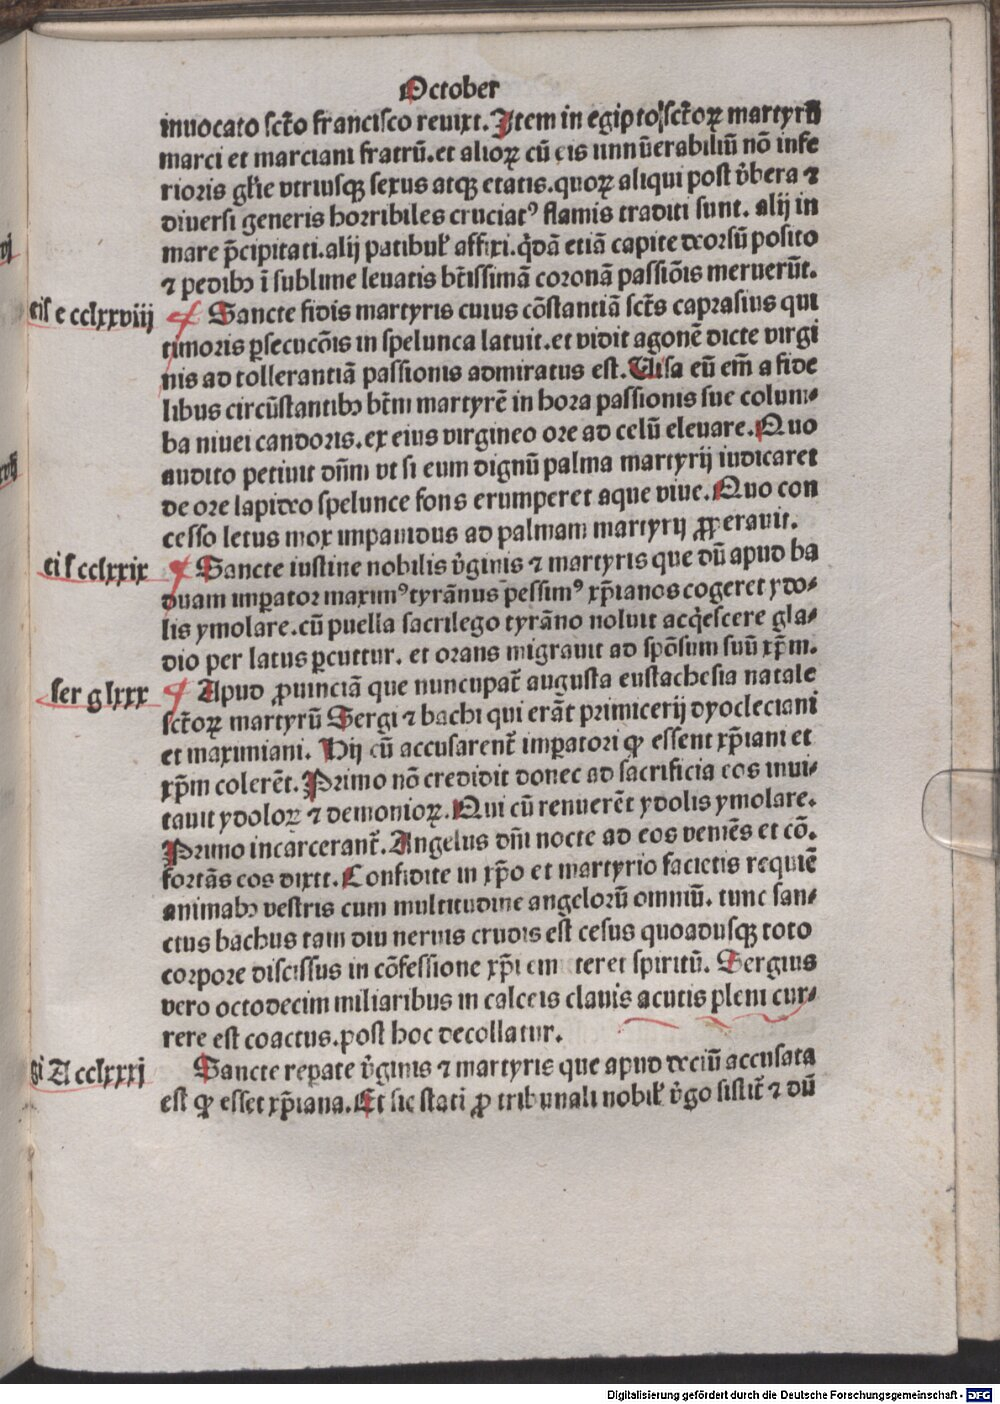 October
inuocato sct̄o francisco reuixt. Item in egipto sct̄oꝝ martyrū
marci et marciani fratrū. et alioꝝ cū eis innūerabiliū nō infe
rioris gl̄ie vtriusqꝫ sexus atqꝫ etatis. quoꝝ aliqui post v̄bera ⁊
diuersi generis horribiles cruciatꝰ flamis traditi sunt. alij in
mare p̄cipitati. alij patibul̄ affixi. q̄dā etiā capite deorsū posito
⁊ pedibꝫ ī sublime leuatis bt̄issimā coronā passiōis meruerūt.
eif e cclxxviij
¶ Sancte fidis martyris cuius cōstantiā sct̄s caprasius qui
timoris ꝑsecucōis in spelunca latuit. et vidit agonē dicte virgi
nis ad tollerantiā passionis admiratus est. Uisa eū em̄ a fide
libus circūstantibꝫ bt̄m martyrē in hora passionis sue colum⸗
ba niuei candoris. ex eius virgineo ore ad celū eleuare. Quo
audito petiuit dn̄m vt si eum dignū palma martyrij iudicaret
de ore lapideo spelunce fons erumperet aque viue. Quo con
cesso letus mox impauidus ad palmam martyrij ꝓꝑerauit.
ei f cclxxix
¶ Sancte iustine nobilis v̄ginis ⁊ martyris que dū apud ba
duam imꝑator maximꝰ tyrānus pessimꝰ xp̄ianos cogeret ydo⸗
lis ymolare. cū puella sacrilego tyrāno noluit acq̄escere gla⸗
dio per latus ꝑcutitur. et orans migrauit ad spōsum suū xp̄m.
ser g lxxx
¶ Apud ꝓuinciā que nuncupat̄ augusta eustachesia natale
sct̄oꝝ martyrū Sergi ⁊ bachi qui erāt primicerij dyocleciani
et maximiani. Hij cū accusarent̄ imꝑatori ꝙ essent xp̄iani et
xp̄m colerēt. Primo nō credidit donec ad sacrificia eos inui⸗
tauit ydoloꝝ ⁊ demonioꝝ. Qui cū renuerēt ydolis ymolare.
Primo incarcerant̄. Angelus dn̄i nocte ad eos veniēs et cō.
fortās eos dixit. Confidite in xp̄o et martyrio facietis requiē
animabꝫ vestris cum multitudine angelorū omniū. tunc san⸗
ctus bachus tam diu neruis crudis est cesus quoadusqꝫ toto
corpore discissus in cōfessione xp̄i em teret spiritū. Sergius
vero octodecim miliaribus in calceis clauis acutis pleni cur⸗
rere est coactus. post hoc decollatur.
gi A cclxxxj
Sancte reꝑate v̄ginis ⁊ martyris que apud deciū accusata
est ꝙ esset xp̄iana. Et sic stati ꝓ tribunali nobil̄ v̄go sistit̄ ⁊ dū
Digitalisierung gefördert durch die Deutsche Forschungsgemeinschaft - DFG